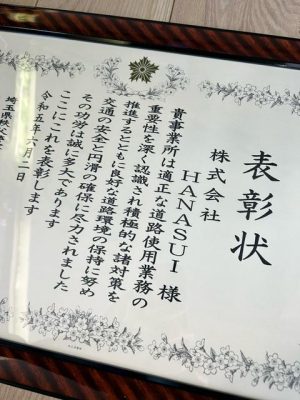 表彰状
株式会社
HANASUI 様
貴事業所は適正な道路使用業務の
重要性を深く認識され積極的な諸対策を
推進するとともに良好な道路環境の保持に努め
交通の安全と円滑の確保に尽力されました
その功労は誠に多大であります
ここにこれを表彰します
令和五年六月二日
埼玉県秩父警